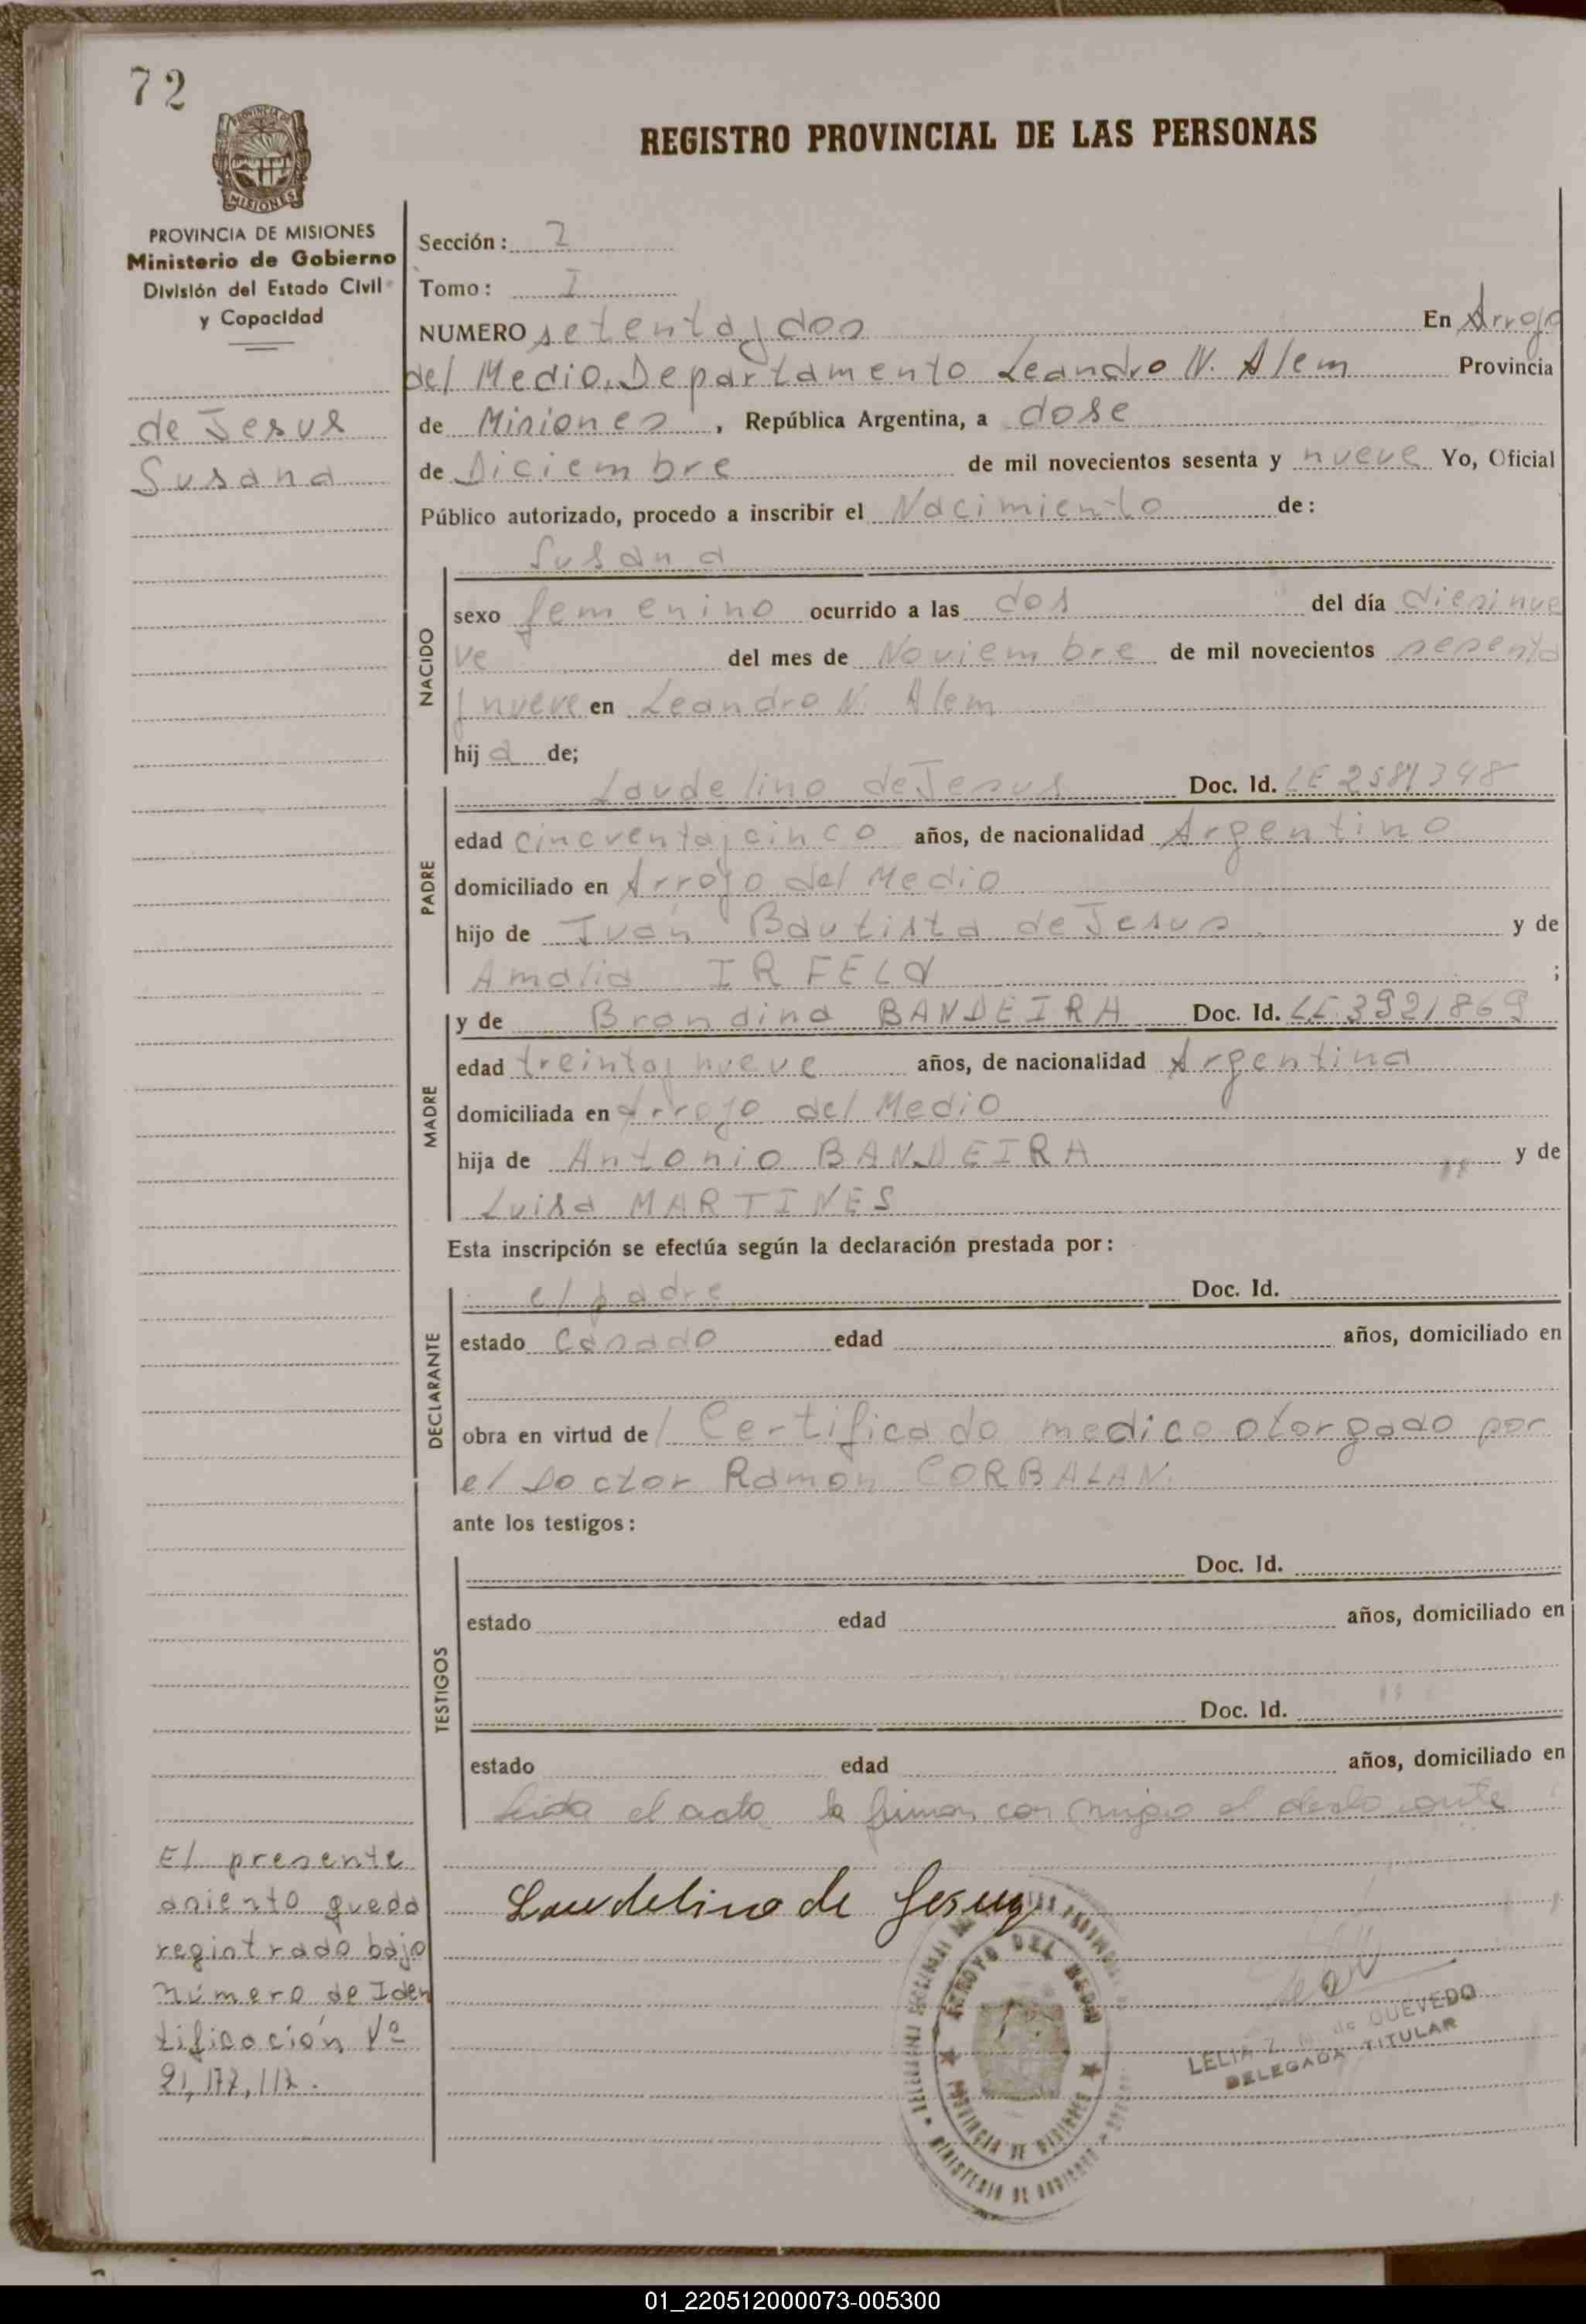 72
PROVINCIA DE
MISIONES
REGISTRO PROVINCIAL DE LAS PERSONAS
PROVINCIA DE MISIONES
Ministerio de Gobierno
División del Estado Civil
y Capacidad
de Jesus
Susana
Sección: 2
Tomo: I
NUMERO setentaydos En Arroyo
del Medio, Departamento Leandro N. Alem Provincia
de Misiones, República Argentina, a dose
de Diciembre de mil novecientos sesenta y nueve Yo, Oficial
Público autorizado, procedo a inscribir el Nacimiento de:
Susana
NACIDO
sexo femenino ocurrido a las dos del día diesinue
ve del mes de Noviembre de mil novecientos sesenta
y nueve en Leandro N. Alem
hija de;
PADRE
Laudelino de Jesus Doc. Id. LE 2581348
edad cincuentaycinco años, de nacionalidad Argentino
domiciliado en Arroyo del Medio
hijo de Juan Bautista de Jesus y de
Amalia ;
MADRE
y de Brandina BANDEIRA Doc. Id. LE 3921869
edad treintaynueve años, de nacionalidad Argentina
domiciliada en Arroyo del Medio
hija de Antonio BANDEIRA y de
Luisa MARTINES
Esta inscripción se efectúa según la declaración prestada por:
DECLARANTE
el padre Doc. Id.
estado Casado edad años, domiciliado en
obra en virtud de Certificado medico otorgado por
el Doctor Ramon CORBALAN.
ante los testigos:
TESTIGOS
Doc. Id.
estado edad años, domiciliado en
Doc. Id.
estado edad años, domiciliado en
Leida el acta la firman conmigo el declarante
Laudelino de Jesus
El presente
asiento queda
registrado bajo
número de Iden
tificación Nº
21,177,117.
ARROYO DEL MEDIO
PROVINCIA DE MISIONES
MINISTERIO DE GOBIERNO
LELIA Z. M. de QUEVEDO
DELEGADA TITULAR
01_220512000073-005300